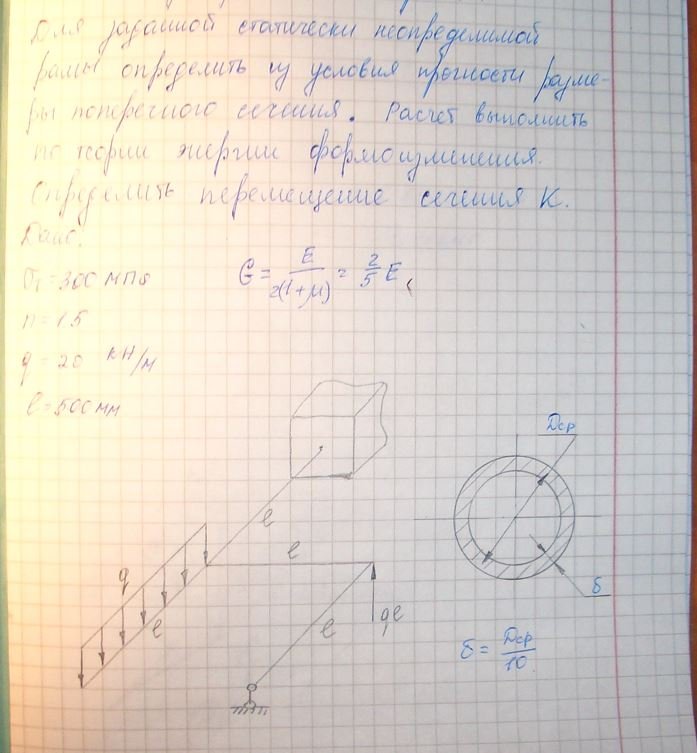 Для заданной статически неопределимой
рамы определить из условия прочности разме-
ры поперечного сечения. Расчет выполнить
по теории энергии формоизменения.
Определить перемещение сечения К.
Дано:
σт = 300 МПа
G = E / 2(1+μ) = 2/5 E
n = 1.5
q = 20 кН/м
l = 500 мм
Dср
l
l
q
l
l
ql
δ
δ = Dср / 10